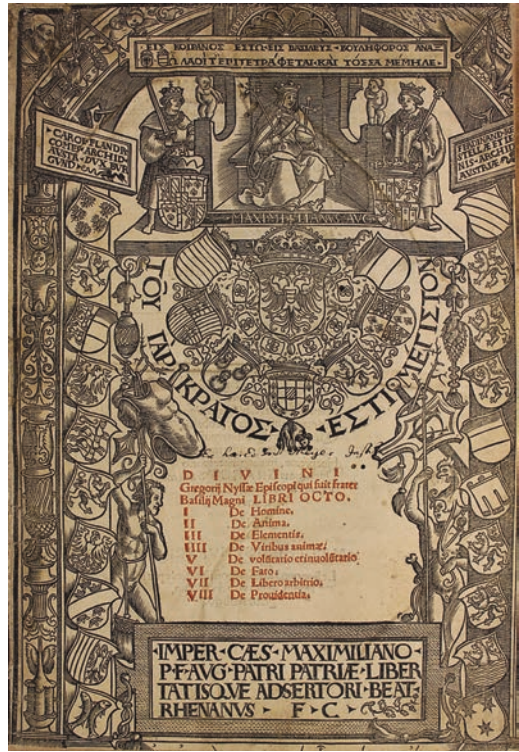 ΕΙΣ ΚΟΙΡΑΝΟΣ ΕΣΤΩ·ΕΙΣ ΒΑΣΙΛΕΥΣ·ΒΟΥΛΗΦΟΡΟΣ ΑΝΑΞ
ΛΑΟΙ Τ ΕΠΙΤΕΤΡΑΦΕΤΑΙ·ΚΑΙ ΤΟΣΣΑ ΜΕΜΗΛΕ·
CAROL FLANDR
COMES ARCHID
AVSTR· DVX BVR
GVND
FERDINAND·RE
AVSTRIAE
MAXIMILIANVS·AVG
ΤΟΥ ΓΑΡ ΚΡΑΤΟΣ·ΕΣΤΙ ΜΕΓΙΣΤΟΝ
DIVINI
Gregorij Nyssæ Episcopi qui fuit frater
Basilij Magni LIBRI OCTO.
I De Homine.
II De Anima.
III De Elementis.
IIII De Viribus animæ.
V De volũtario et inuolũtario
VI De Fato.
VII De Libero arbitrio.
VIII De Prouidentia.
·IMPER·CÆS·MAXIMILIANO·
P·F·AVG·PATRI PATRIÆ·LIBER
TATISQVE ADSERTORI·BEAT·
RHENANVS · F · C ·